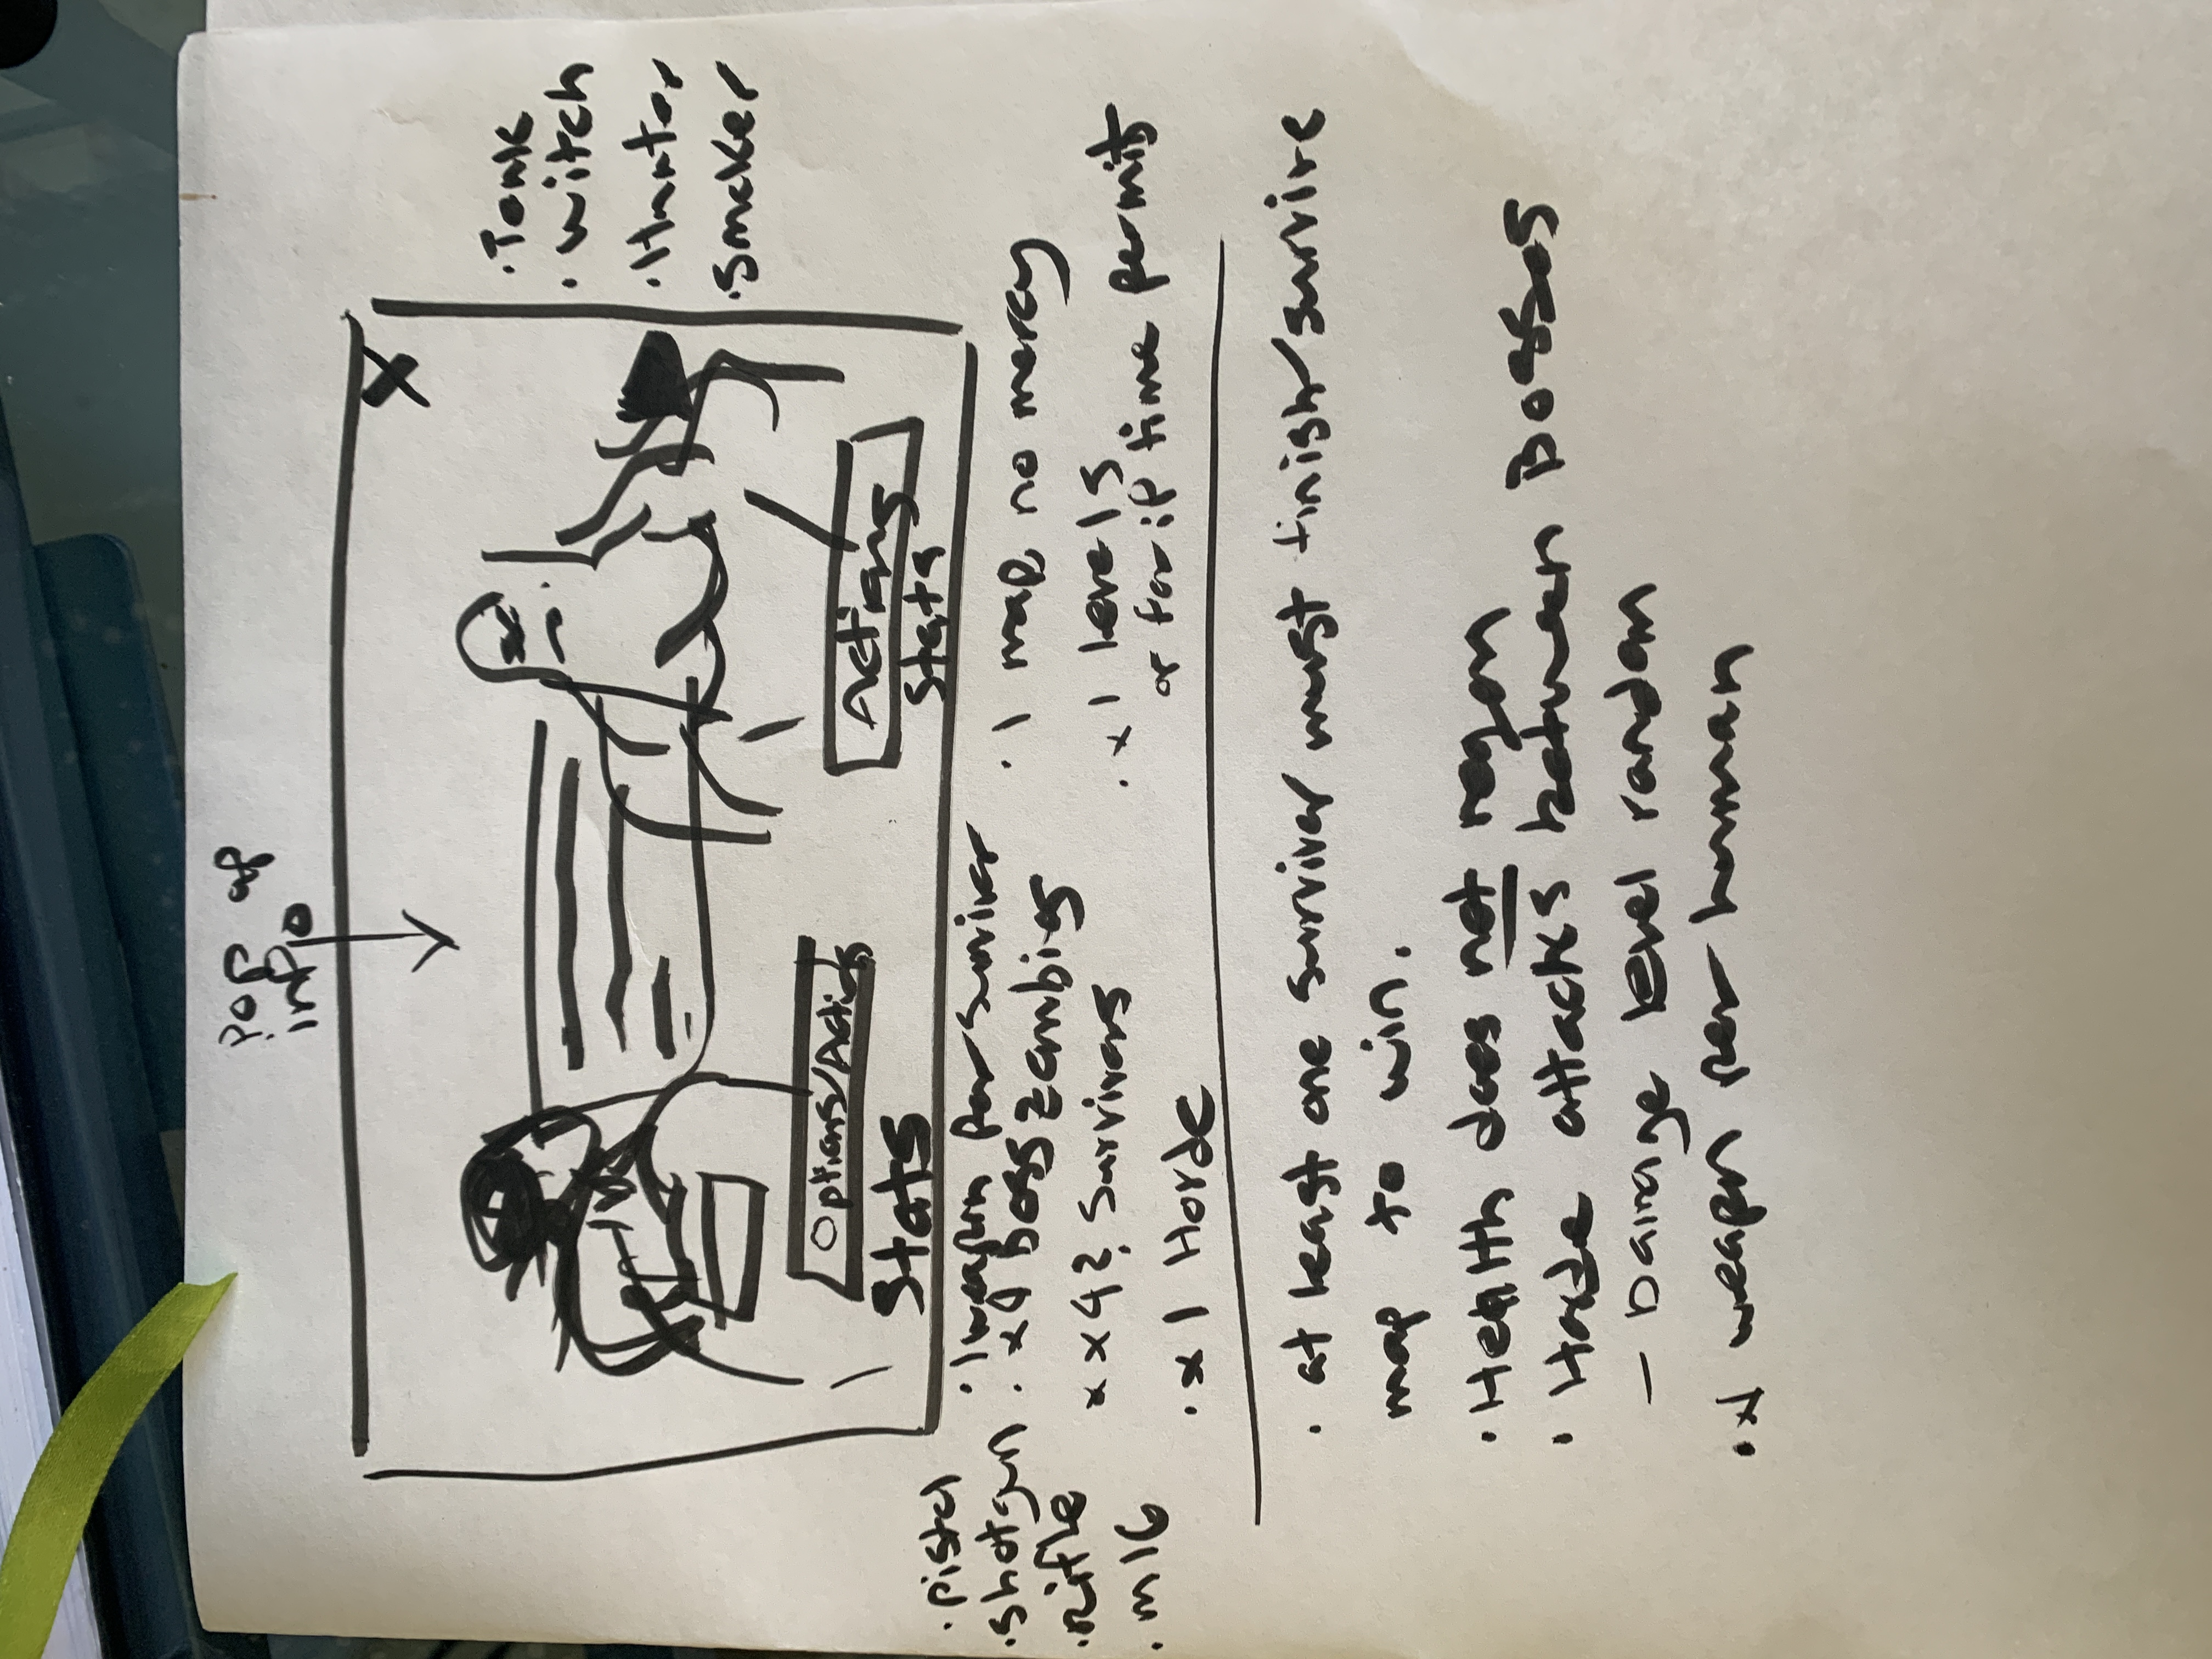 Pop up
info
X
• Tank
• witch
• Hunter
• Smoker
Options/Actions
Stats
Actions
Stats
• pistol
• shotgun
• rifle
• m16
• 1 weapon per surviver
• x4 Boss zombies
x x4? Survivers
• x1 Horde
• 1 map, no mercy
• x1 levels
or for if time permits
• at least one surviver must finish/survive
map to win.
• Health does not regen
• Horde attacks between Bosses
— Damage level random
• x1 weapn per human